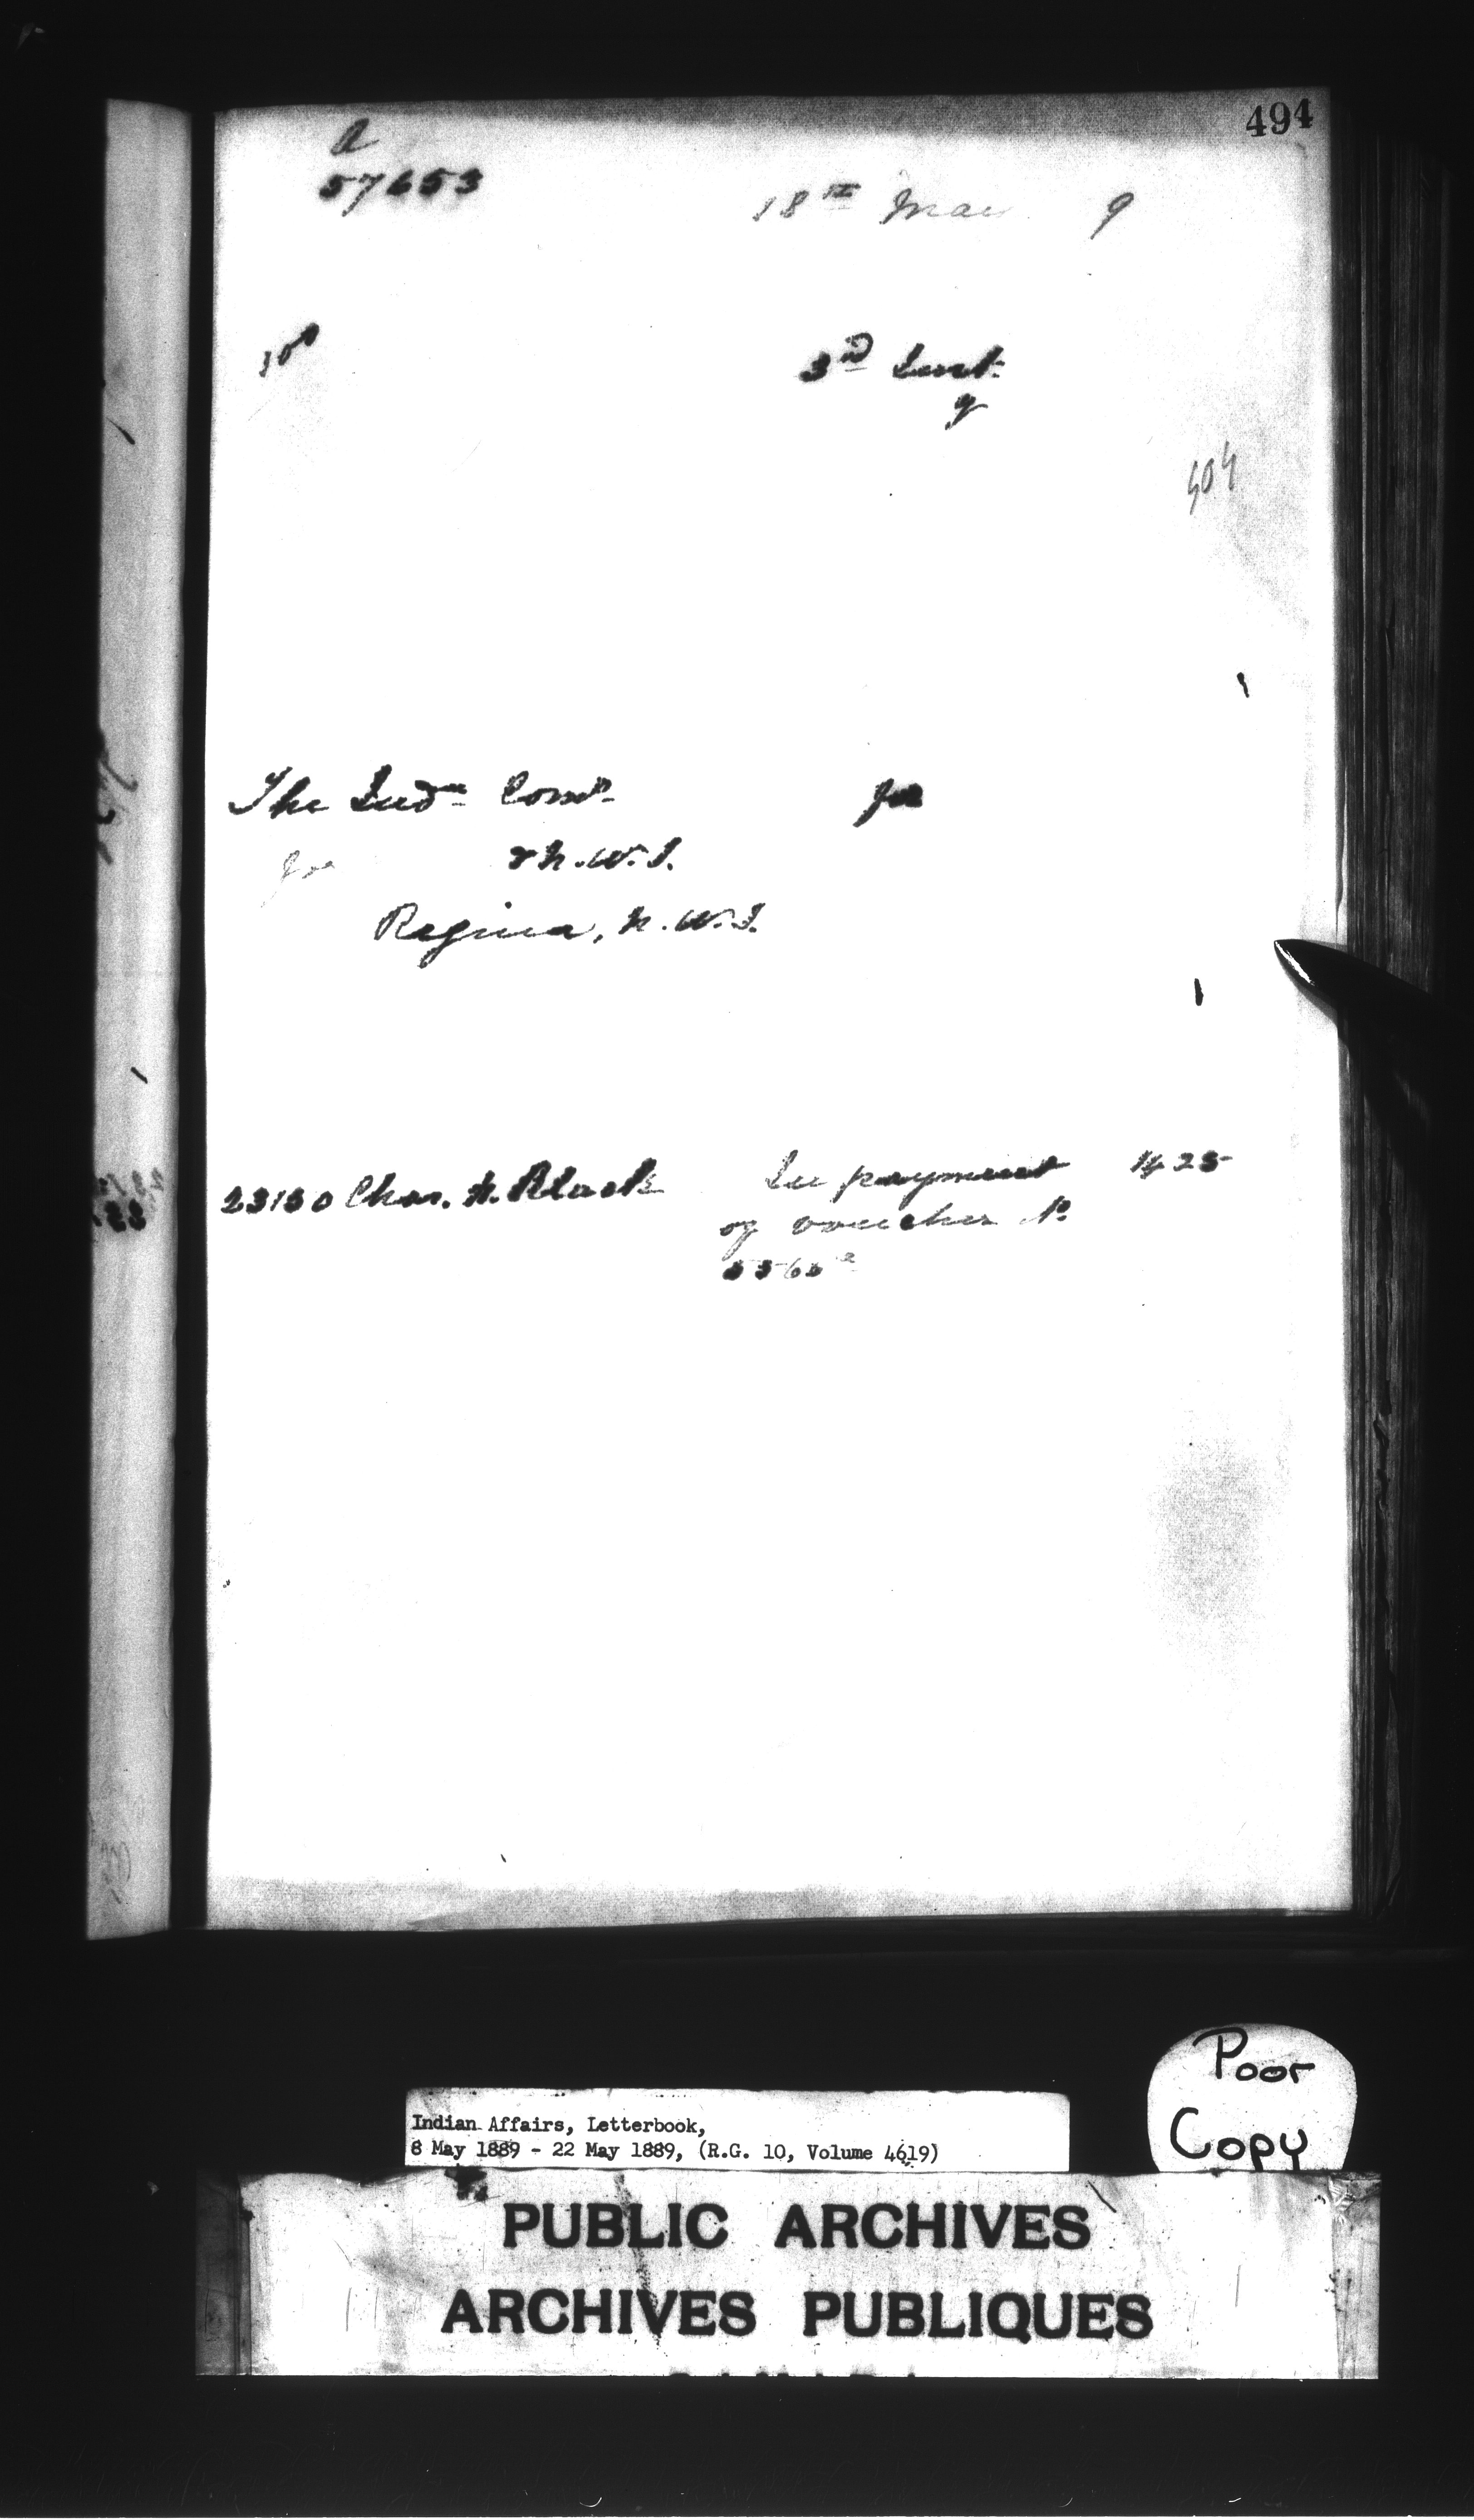 494
A
57653
18th May 9
3rd Inst.
404
The Indn Comr
for
& N.W.T.
Regina, N.W.T.
23130 Chas. H. Black In payment 14 25
of voucher No
Indian Affairs, Letterbook,
8 May 1889 - 22 May 1889, (R.G. 10, Volume 4619)
Poor
Copy
PUBLIC ARCHIVES
ARCHIVES PUBLIQUES